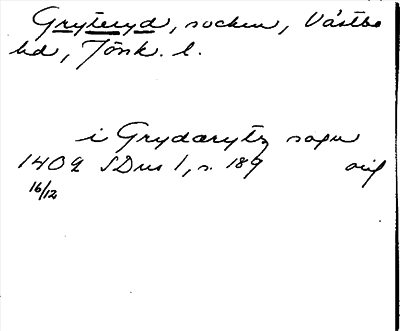 Gryteryd, socken, Västbo
hd, Jönk. l.
i Grydarytz sogn
1402 SDns 1, s. 189 orig
16/12